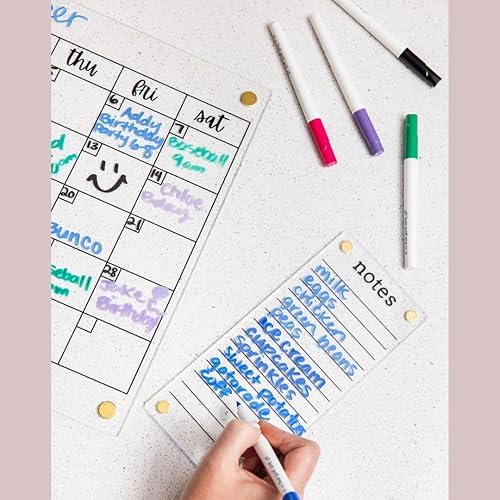 thu fri sat
6
Addy
Birthday
Party 6-8
7
Baseball
9am
13
14
Chloe
20
Bunco
21
28
Jake
Birthday
notes
milk
eggs
chicken
green beans
peas
ice cream
cupcakes
sprinkles
sweet potato
gatorade
coff